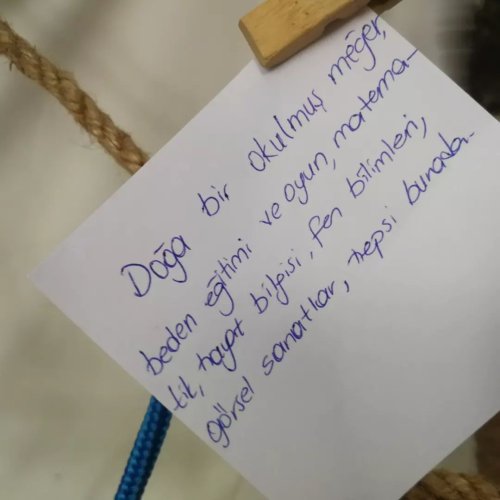 Doğa bir okulmuş meğer,
beden eğitimi ve oyun, matema-
tik, hayat bilgisi, fen bilimleri,
görsel sanatlar, hepsi burada.